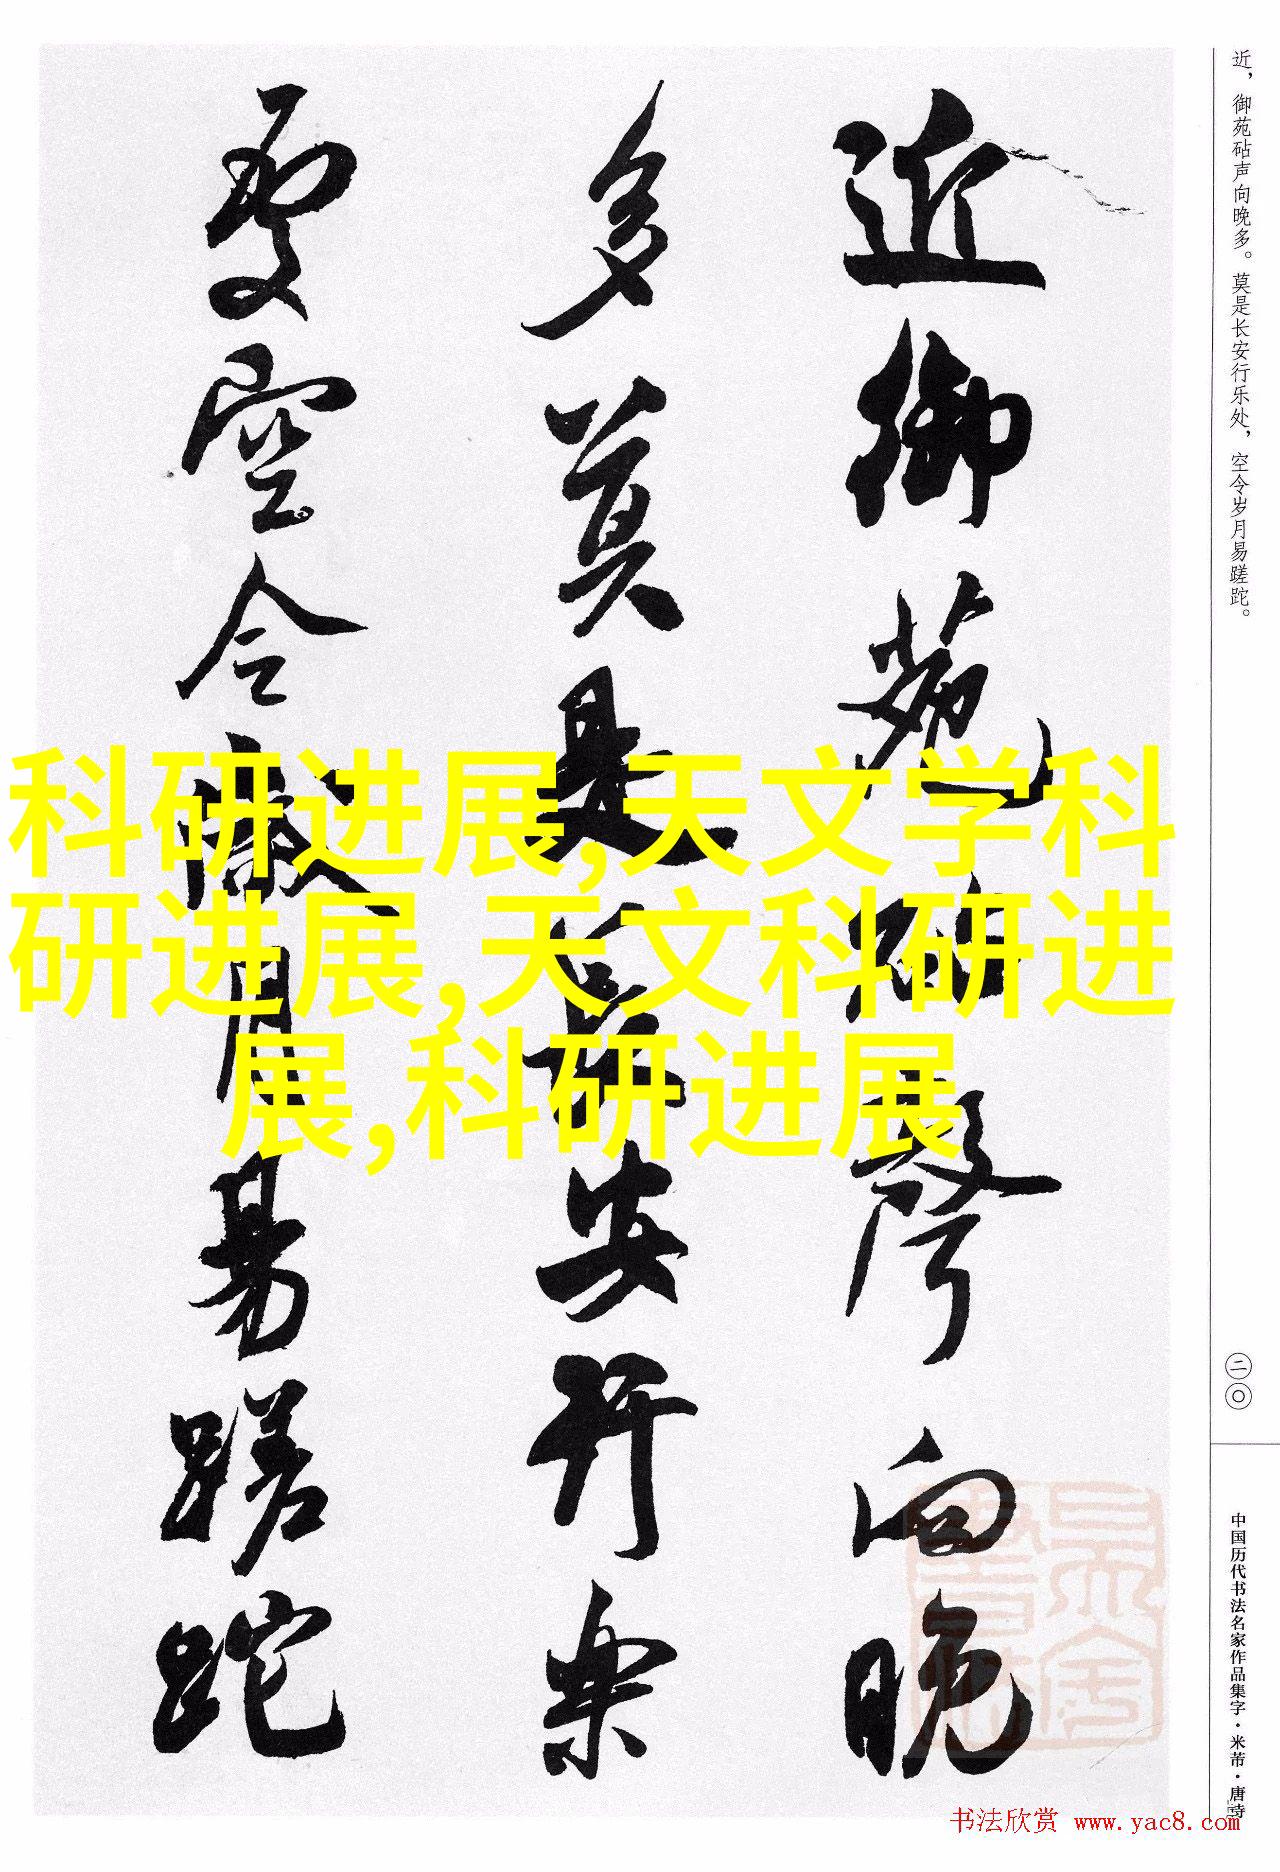 近御苑砧聲向晚
多莫是長安行樂
處空令歲月易蹉跎
近，御苑砧声向晚多。莫是长安行乐处，空令岁月易蹉跎。
二〇
中国历代书法名家作品集字·米芾·唐诗
科研进展,天文学科
研进展,天文科研进
展,科研进展
书法欣赏 www.yac8.com